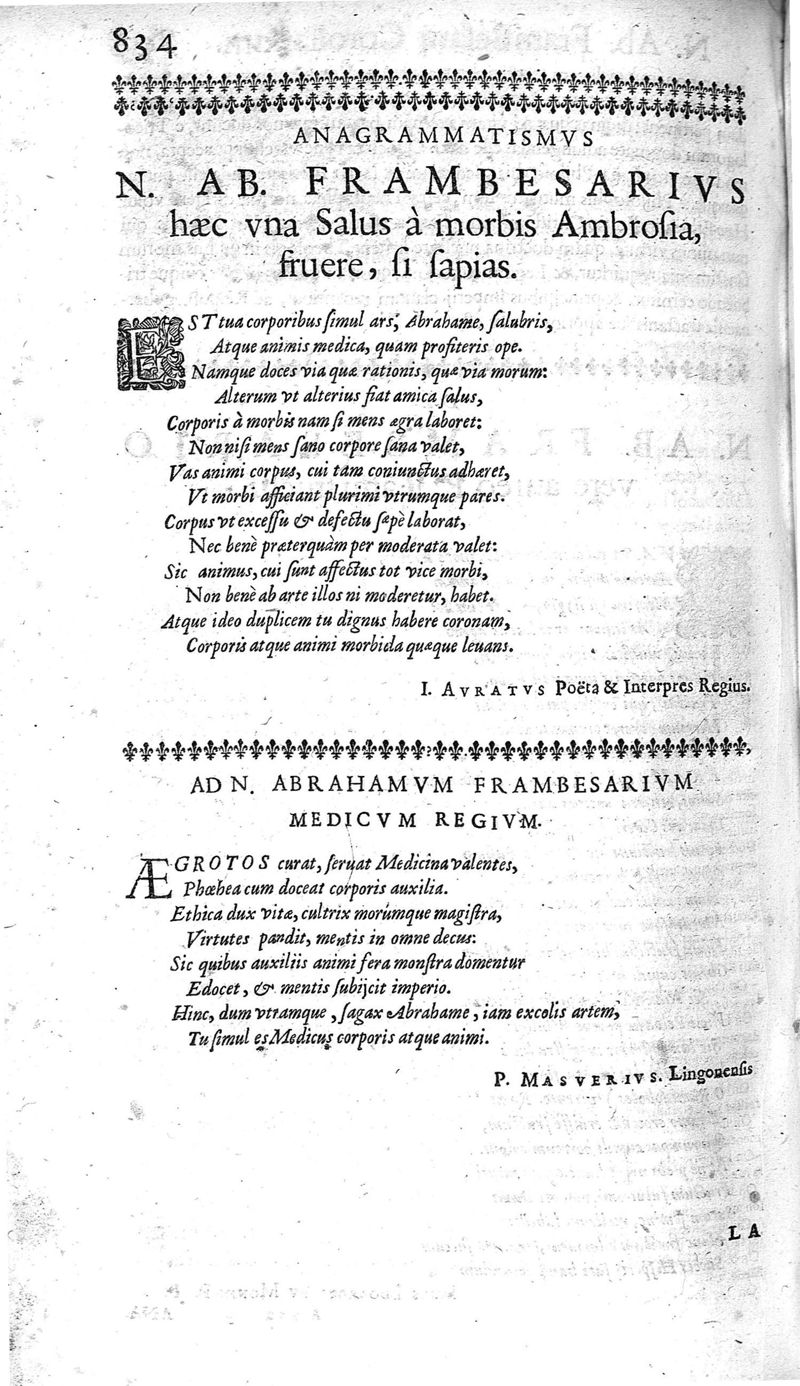 834
ANAGRAMMATISMVS
N. AB. FRAMBESARIVS
hæc vna Salus à morbis Ambroſia,
fruere, ſi ſapias.
EST tua corporibus ſimul ars, Abrahame, ſalubris,
Atque animis medica, quam profiteris ope.
Namque doces via quæ rationis, quæ via morum:
Alterum vt alterius fiat amica ſalus,
Corporis à morbis nam ſi mens ægra laboret:
Non niſi mens ſano corpore ſana valet,
Vas animi corpus, cui tam coniunctus adhæret,
Vt morbi afficiant plurimi vtrumque pares.
Corpus vt exceſſu & defectu ſæpè laborat,
Nec benè præterquàm per moderata valet:
Sic animus, cui ſunt affectus tot vice morbi,
Non benè ab arte illos ni moderetur, habet.
Atque ideo duplicem tu dignus habere coronam,
Corporis atque animi morbida quæque leuans.
I. AVRATVS Poëta & Interpres Regius.
AD N. ABRAHAMVM FRAMBESARIVM
MEDICVM REGIVM.
ÆGROTOS curat, ſeruat Medicina valentes,
Phœhea cum doceat corporis auxilia.
Ethica dux vitæ, cultrix morúmque magiſtra,
Virtutes pandit, mentis in omne decus:
Sic quibus auxiliis animi fera monſtra domentur
Edocet, & mentis ſubijcit imperio.
Hinc, dum vtramque, ſagax Abrahame, iam excolis artem,
Tu ſimul es Medicus corporis atque animi.
P. MASVERIVS. Lingonenſis
LA